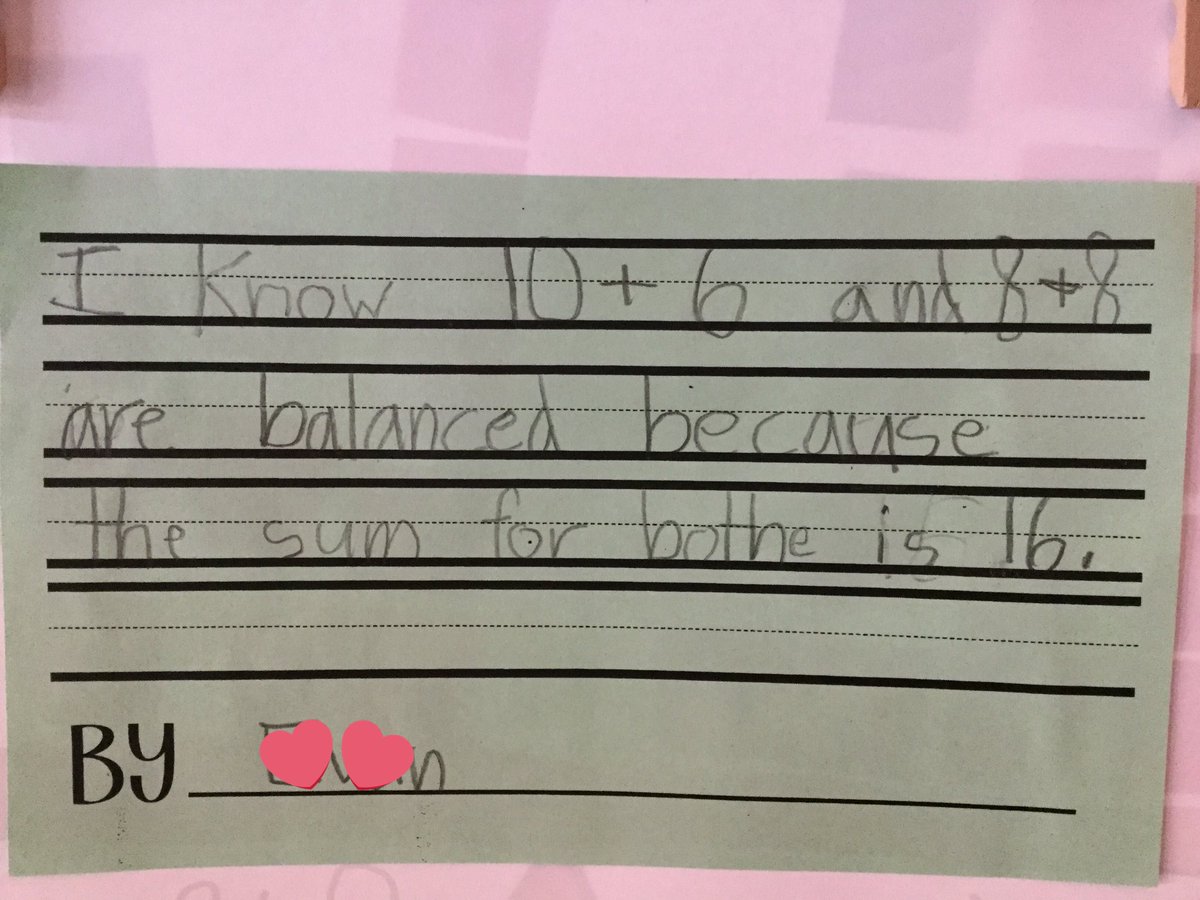 I know 10+6 and 8+8
are balanced because
the sum for bothe is 16.
BY